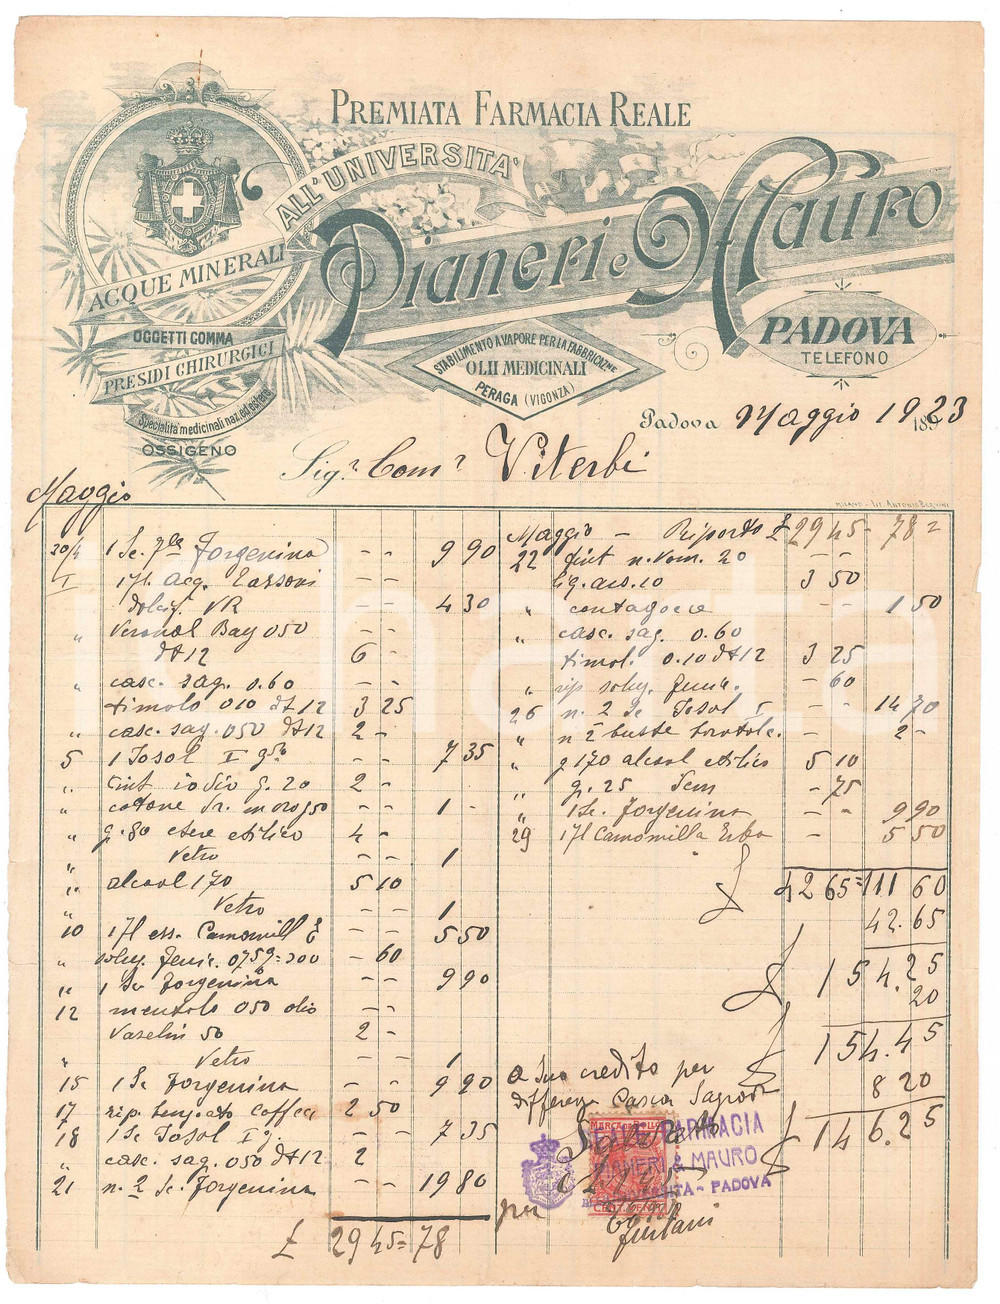 PREMIATA FARMACIA REALE
ALL'UNIVERSITA'
Pianeri e Mauro
ACQUE MINERALI
OGGETTI GOMMA
PRESIDI CHIRURGICI
Specialità medicinali naz. ed estere
OSSIGENO
STABILIMENTO A VAPORE PER LA FABBRICAZNE
OLII MEDICINALI
PERAGA (VIGONZA)
PADOVA
TELEFONO
Padova Maggio 1923
189
Sig.r Com.r Viterbi
Maggio
20/4 1 Sc. Jorgenina - - 9 90
1 Fl. acq. - -
VR 4 30
" Veronal Bay 050 - -
dt 12 6 -
" casc. sag. 0.60 - -
timolo 010 dt 12 3 25
" casc. sag. 050 dt 12 2 -
5 1 Iosol I 7 35
" tint iodio g. 20 2 -
" cotone 50 - - 1 -
" g. 80 etere etilico 4 -
" Vetro - - 1
" alcool 170 5 10
" Vetro - - 1
10 1 Fl ess. Camomill E - - 5 50
" soluz. fenic. - 60
" 1 Sc Jorgenina - - 9 90
12 mentolo 050 olio - -
vaselin 50 2 -
" Vetro - - 1
15 1 Sc Jorgenina - - 9 90
17 rip. 2 50
18 1 Sc Iosol I - - 7 35
" casc. sag. 050 dt 12 2
21 n. 2 Sc. Jorgenina - - 19 80
£ 29 45 = 78
Maggio - Riporto £ 29 45 - 78 =
22 tint n. vom. 20 - -
liq. ars. 10 3 50
" contagocce - - 1 50
" casc. sag. 0.60
timol. 0.10 dt 12 3 25
" rip soluz. fenic. - 60
26 n. 2 Sc Iosol I - - 14 70
" n 2 buste - - 2 -
" g 170 alcool etilico 5 10
" g. 25 Idem - 75
" 1 Sc. Jorgenina - - 9 90
29 1 Fl Camomilla Erba - 5 50
£ 42 65 = 111 60
42.65
£ 154.25
20
£ 154.45
8 20
£ 146.25
a suo credito per
differenza Casca Sagrada
MARCA DA BOLLO
FARMACIA
PIANERI & MAURO
PADOVA
per